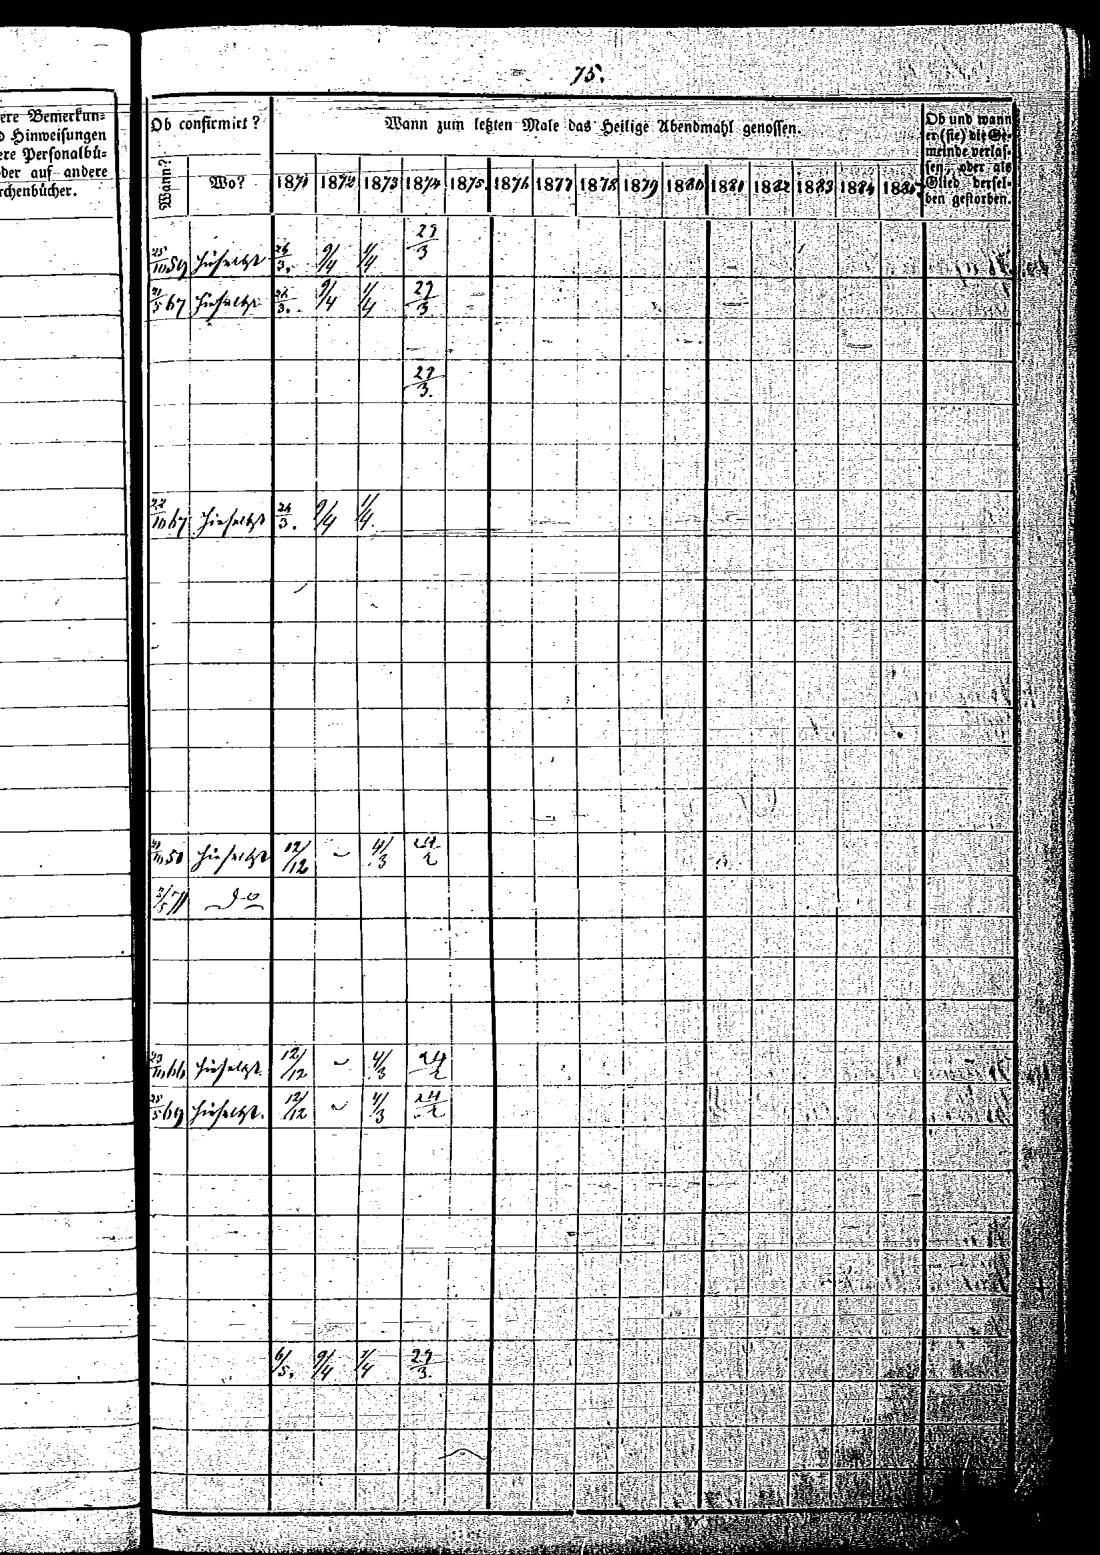 75.
ere Bemerkun=
d Hinweisungen
ere Personalbü=
der auf andere
rchenbücher.
Ob confirmirt?
Wann zum letzten Male das Heilige Abendmahl genossen.
Ob und wann
er (sie) die Ge=
meinde verlas=
sen, oder als
Glied dersel=
ben gestorben.
Wann? Wo? 1871 1872 1873 1874 1875. 1876 1877 1878 1879 1880 1881 1882 1883 1884 1885.
25/10 59 hieselbst 26/3. 9/4 1/4 29/3
21/5 67 hieselbst 26/3. 9/4 1/4 29/3
29/3.
22/10 67 hieselbst 26/3. 9/4 1/4.
50 hieselbst 12/12 – 4/3 24/2
2/5 71 do
23/10 66 hieselbst 12/12 – 4/3 24/2
25/5 69 hieselbst. 12/12 – 4/3 24/2
6/5. 9/4 1/4 29/3.